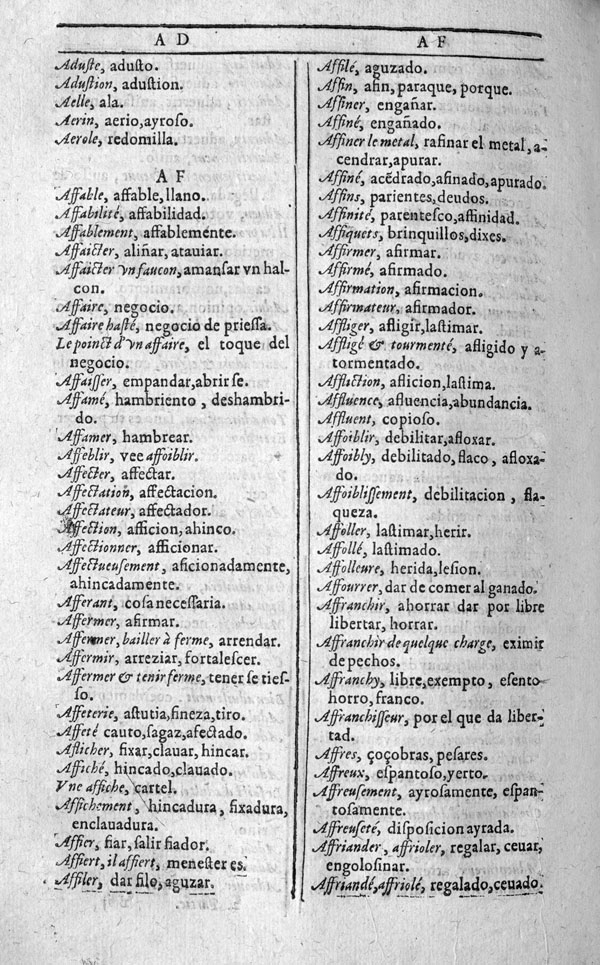 A D
Aduſte, aduſto.
Aduſtion, aduſtion.
Aelle, ala.
Aerin, aerio, ayroſo.
Aerole, redomilla.
A F
Affable, affable, llano.
Affabilité, affabilidad.
Affablement, affablemente.
Affaicter, aliñar, atauiar.
Affaicter vn faucon, amanſar vn hal-
con.
Affaire, negocio.
Affaire haſté, negocio de prieſſa.
Le poinct d'vn affaire, el toque del
negocio.
Affaiſſer, empandar, abrir ſe.
Affamé, hambriento, deshambri-
do.
Affamer, hambrear.
Affeblir, vee affoiblir.
Affecter, affectar.
Affectation, affectacion.
Affectateur, affectador.
Affection, afficion, ahinco.
Affectionner, afficionar.
Affectueuſement, aficionadamente,
ahincadamente.
Afferant, coſa neceſſaria.
Affermer, afirmar.
Affermer, bailler à ferme, arrendar.
Affermir, arreziar, fortaleſcer.
Affermer & tenir ferme, tener ſe tieſ-
ſo.
Affeterie, aſtutia, fineza, tiro.
Affeté cauto, ſagaz, afectado.
Afficher, fixar, clauar, hincar.
Affiché, hincado, clauado.
Vne affiche, cartel.
Affichement, hincadura, fixadura,
enclauadura.
Affier, fiar, ſalir fiador.
Affiert, il affiert, meneſter es.
Affiler, dar filo, aguzar.
A F
Affilé, aguzado.
Affin, afin, paraque, porque.
Affiner, engañar.
Affiné, engañado.
Affiner le metal, rafinar el metal, a-
cendrar, apurar.
Affiné, acēdrado, afinado, apurado.
Affins, parientes, deudos.
Affinité, parenteſco, affinidad.
Affiquets, brinquillos, dixes.
Affirmer, afirmar.
Affirmé, afirmado.
Affirmation, afirmacion.
Affirmateur, afirmador.
Affliger, afligir, laſtimar.
Affligé & tourmenté, afligido y a-
tormentado.
Affliction, aflicion, laſtima.
Affluence, afluencia, abundancia.
Affluent, copioſo.
Affoiblir, debilitar, afloxar.
Affoibly, debilitado, flaco, afloxa-
do.
Affoibliſſement, debilitacion, fla-
queza.
Affoller, laſtimar, herir.
Affollé, laſtimado.
Affolleure, herida, leſion.
Affourrer, dar de comer al ganado.
Affranchir, ahorrar dar por libre
libertar, horrar.
Affranchir de quelque charge, eximir
de pechos.
Affranchy, libre, exempto, eſento
horro, franco.
Affranchiſſeur, por el que da liber-
tad.
Affres, çoçobras, peſares.
Affreux, eſpantoſo, yerto.
Affreuſement, ayroſamente, eſpan-
toſamente.
Affreuſeté, diſpoſicion ayrada.
Affriander, affrioler, regalar, ceuar,
engoloſinar.
Affriandé, affriolé, regalado, ceuado.